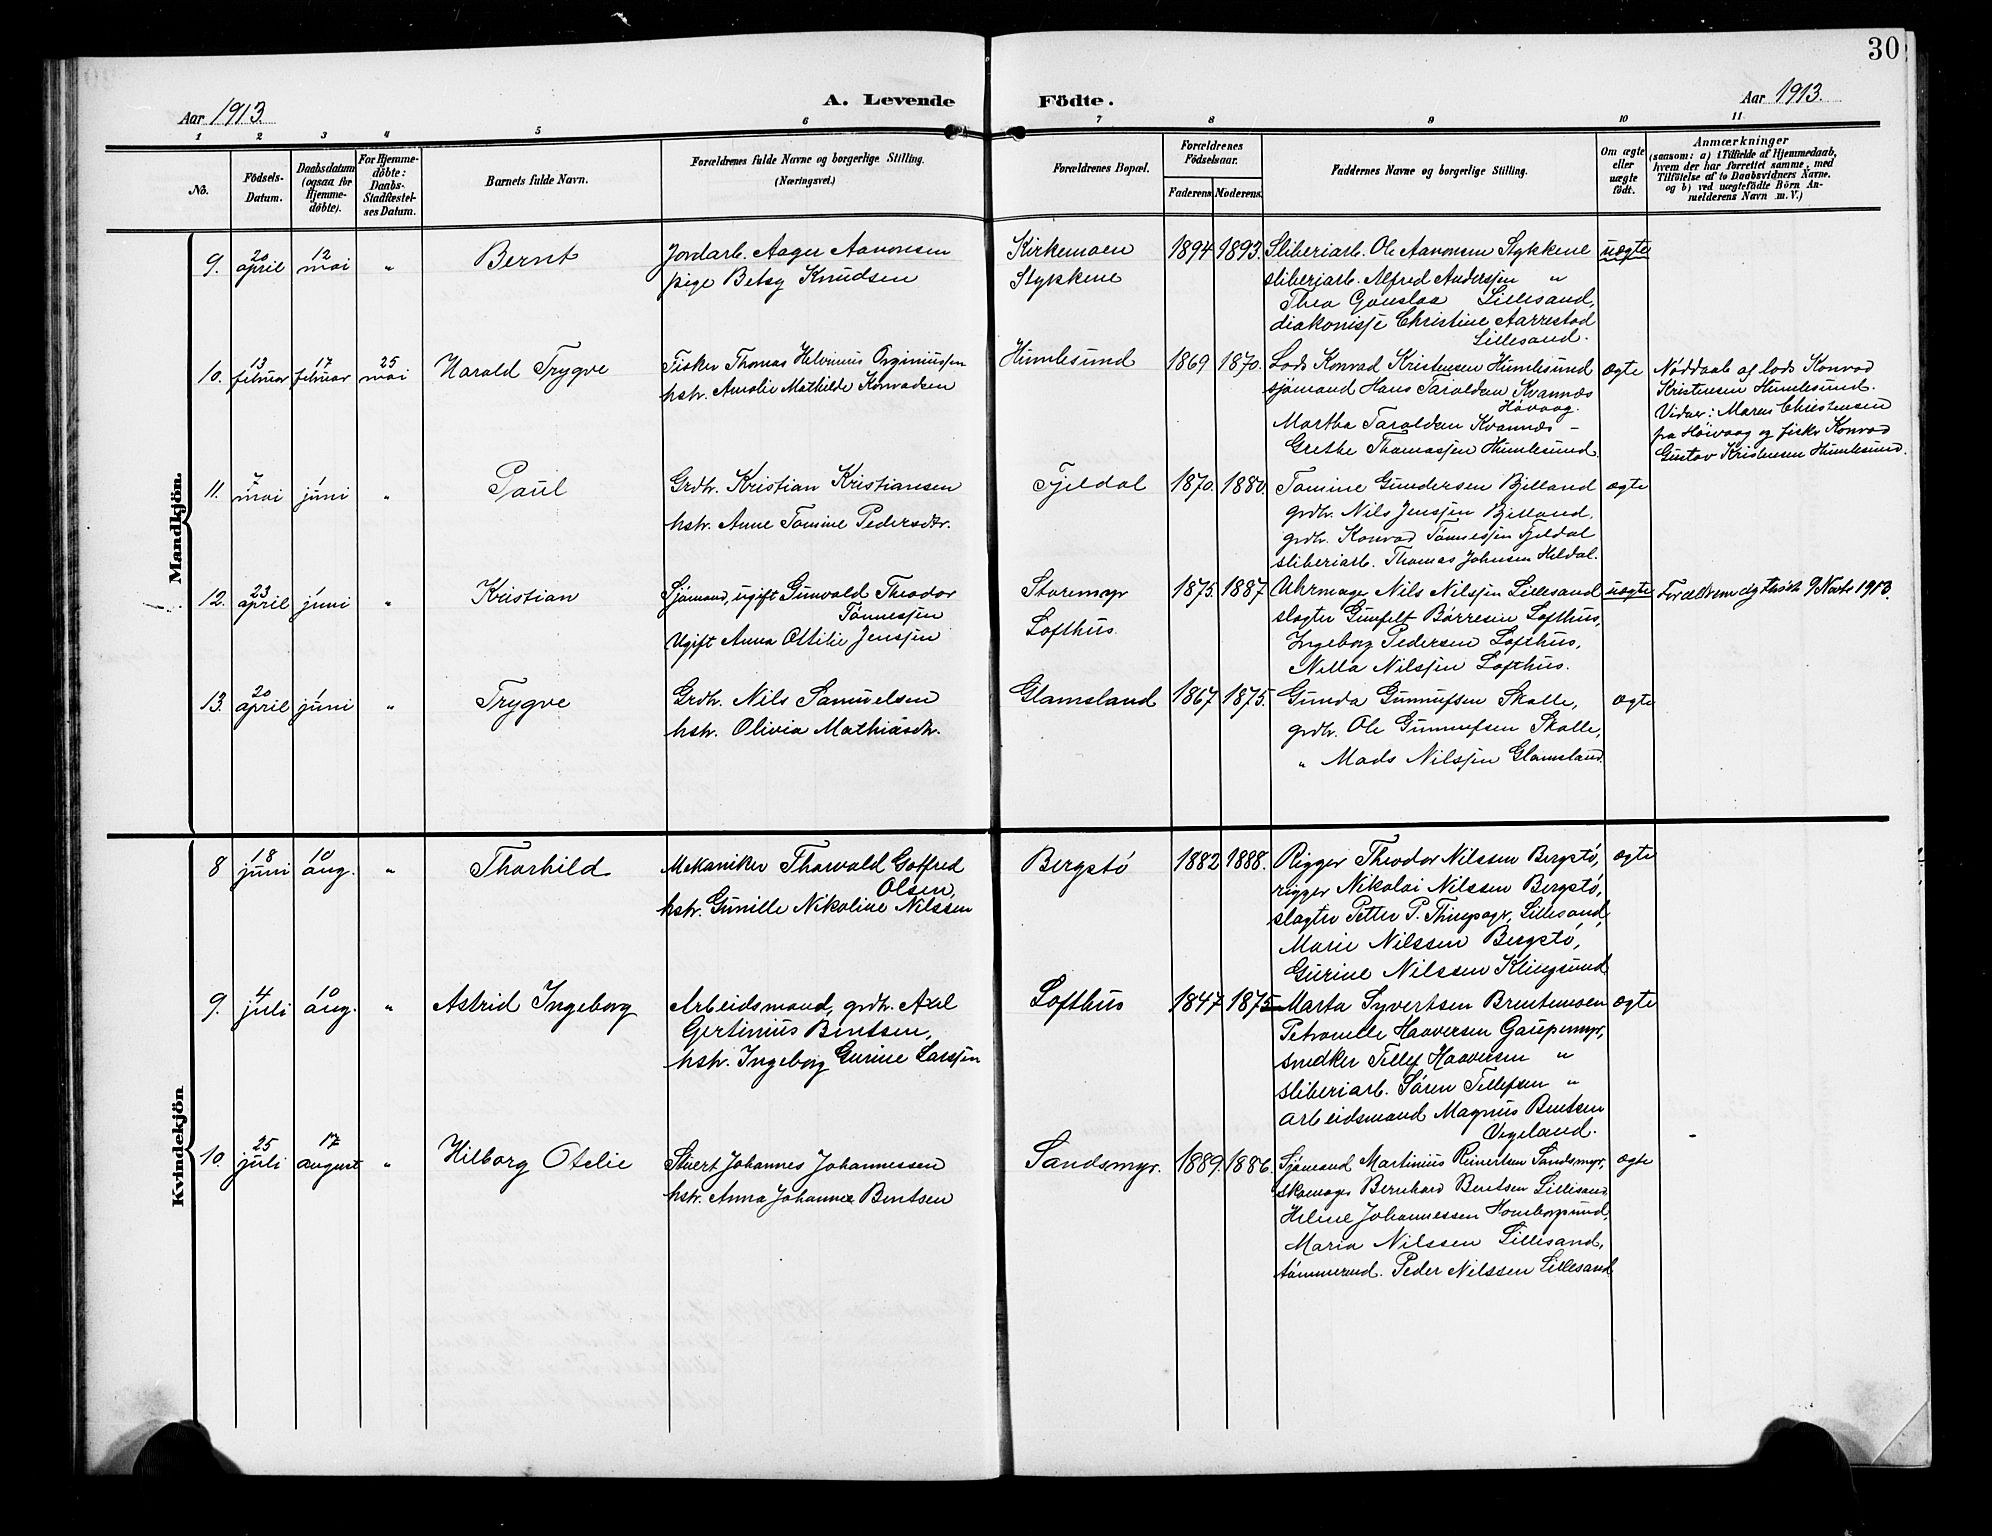 30
Aar 1913.
A. Levende Födte.
Aar 1913.
1 2 3 4 5 6 7 8 9 10 11
No.
Födsels-Datum.
Daabsdatum (ogsaa for Hjemme-döbte).
For Hjemme-döbte: Daabs-Stadfæstel-ses Datum.
Barnets fulde Navn.
Forældrenes fulde Navne og borgerlige Stilling.
(Næringsvei.)
Forældrenes Bopæl.
Forældrenes Födselsaar.
Faderens. Moderens.
Faddernes Navne og borgerlige Stilling.
Om ægte eller uægte födt.
Anmærkninger
(saasom: a) i Tilfælde af Hjemmedaab, hvem der har forrettet samme, med Tilföielse af to Daabsvidners Navne, og b) ved uægtefödte Börn An-melderens Navn m. V.)
Mandkjön.
9. 20 april 12 mai " Bernt
Jordarb. Aage Aavonsen
pige Betsy Knudsen
Kirkemoen
Stykkene
1894 1893.
Sliberiarb. Ole Aavonsen Stykkene
sliberiarb. Alfred Anderssen "
Thea Lillesand,
diakonisse Christine Aarrestad
Lillesand.
uægte
10. 13 februar 17 februar 25 mai Harald Trygve
Fisker Thomas Helvinius Orginiussen
hstr. Amalie Mathilde Konradsen
Humlesund
1869 1870.
Lods Konrad Kristensen Humlesund
sjømand Hans Taraldsen Kvannes
Høvaag.
Martha Taraldsen Kvannes -
Grethe Thomassen Humlesund.
ægte
Nøddaab af lods Konrad
Kristensen Humlesund.
Vidner: Maren Christensen
fra Høivaag og fisker Konrad
Gustav Kristensen Humlesund.
11. 7 mai 1 juni " Paul
Grdbr. Kristian Kristiansen
hstr. Anne Tomine Pedersdtr.
Fjeldal
1870. 1880.
Tomine Gundersen Bjelland
grdbr. Nils Jenssen Bjelland,
grdbr. Konrad Tønnessen Fjeldal
sliberiarb. Thomas Johnsen Heldal.
ægte
12. 23 april 1 juni " Kristian
Sjømand, ugift Gunvald Theodor
Tønnessen
Ugift Anna Ottilie Jenssen
Storemyr
Lofthus.
1875. 1887
Uhrmager Nils Nilssen Lillesand
slagter Gunfelt Børresen Lofthus,
Ingeborg Pedersen Lofthus,
Nilla Nilssen Lofthus.
uægte
13. 20 april 1 juni " Trygve
Grdbr. Nils Samuelsen
hstr. Olivia Mathiasdtr.
Glamsland
1867 1875.
Gunda Gunnufsen Skalle,
grdbr. Ole Gunnufsen Skalle,
" Mads Nilssen Glamsland.
ægte
Kvindekjön
8 18 juni 10 aug. " Thorhild
Mekaniker Thorvald Gotfred
Olsen,
hstr. Gunille Nikoline Nilssen
Bergstø
1882 1888.
Rigger Theodor Nilssen Bergstø,
rigger Nikolai Nilssen Bergstø,
slagter Petter P. Lillesand,
Marie Nilssen Bergstø,
Gurine Nilssen Klingsund
ægte
9. 4 juli 10 aug. " Astrid Ingeborg
Arbeidsmand, grdbr. Axel
Gertinius Bentsen,
hstr. Ingeborg Gurine Larssen
Lofthus
1847 1875
Marta Syvertsen Brentemoen
Petronelle Haaversen Gaupemyr,
snedker Tellef Haaversen "
sliberiarb. Søren Tellefsen "
arbeidsmand Magnus Bentsen
Vegeland.
ægte
10. 25 juli 17 august " Hilborg Otelie
Stuert Johannes Johannessen
hstr. Anna Johanne Bentsen
Sandsmyr.
1889. 1886.
Sjømand Martinius Reinertsen Sandsmyr,
skomager Bernhard Bentsen Lillesand
Helene Johannessen Homborsund,
Maria Nilssen Lillesand,
tømmermd. Peder Nilssen Lillesand
ægte